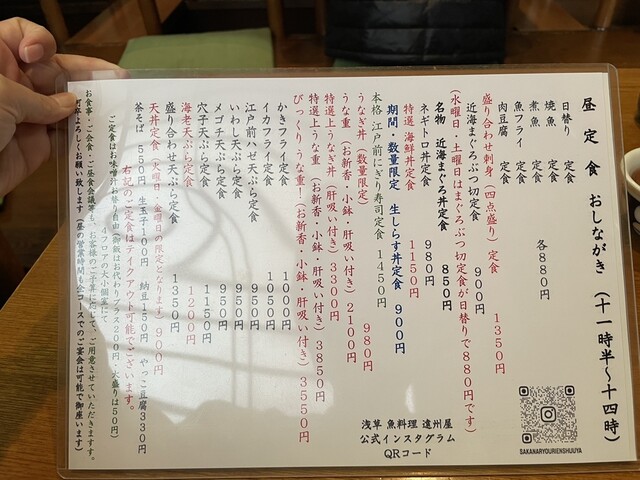 昼定食 おしながき (十一時半～十四時)
日替り 定食
焼魚 定食
煮魚 定食
魚フライ 定食
肉豆腐 定食
各880円
盛り合わせ刺身(四点盛り)定食 1350円
近海まぐろぶつ切定食 900円
(水曜日・土曜日はまぐろぶつ切定食が日替りで880円です)
名物 近海まぐろ丼定食 850円
ネギトロ丼定食 980円
特選 海鮮丼定食 1150円
期間・数量限定 生しらす丼定食 900円
本格 江戸前にぎり寿司定食 1450円
うなぎ丼(数量限定) 980円
うな重(お新香・小鉢・肝吸い付き)2100円
特選うなぎ丼(肝吸い付き)3300円
特選上うな重(お新香・小鉢・肝吸い付き)3850円
びっくりうな重!(お新香・小鉢・肝吸い付き)3550円
かきフライ定食 1000円
イカフライ定食 1050円
江戸前ハゼ天ぷら定食 950円
いわし天ぷら定食 950円
メゴチ天ぷら定食 950円
穴子天ぷら定食 1150円
海老天ぷら定食 1200円
盛り合わせ天ぷら定食 1350円
天丼定食(火曜日・金曜日の限定となります)900円
右記のご定食はテイクアウト可能でございます。
茶そば 550円 生玉子100円 納豆150円 やっこ豆腐330円
ご定食はお味噌汁お替り自由(御飯はお代わりプラス200円、大盛りは50円)
4フロアの大小個室にて
お食事・ご会食・ご昼食会議等も、お客様のご予算に応じて、ご用意させていただきます。
何卒よろしくお願い致します(昼の営業時間も全コースでのご宴会は可能で御座います)
浅草 魚料理 遠州屋
公式インスタグラム
QRコード
SAKANARYOURIENSHUUYA